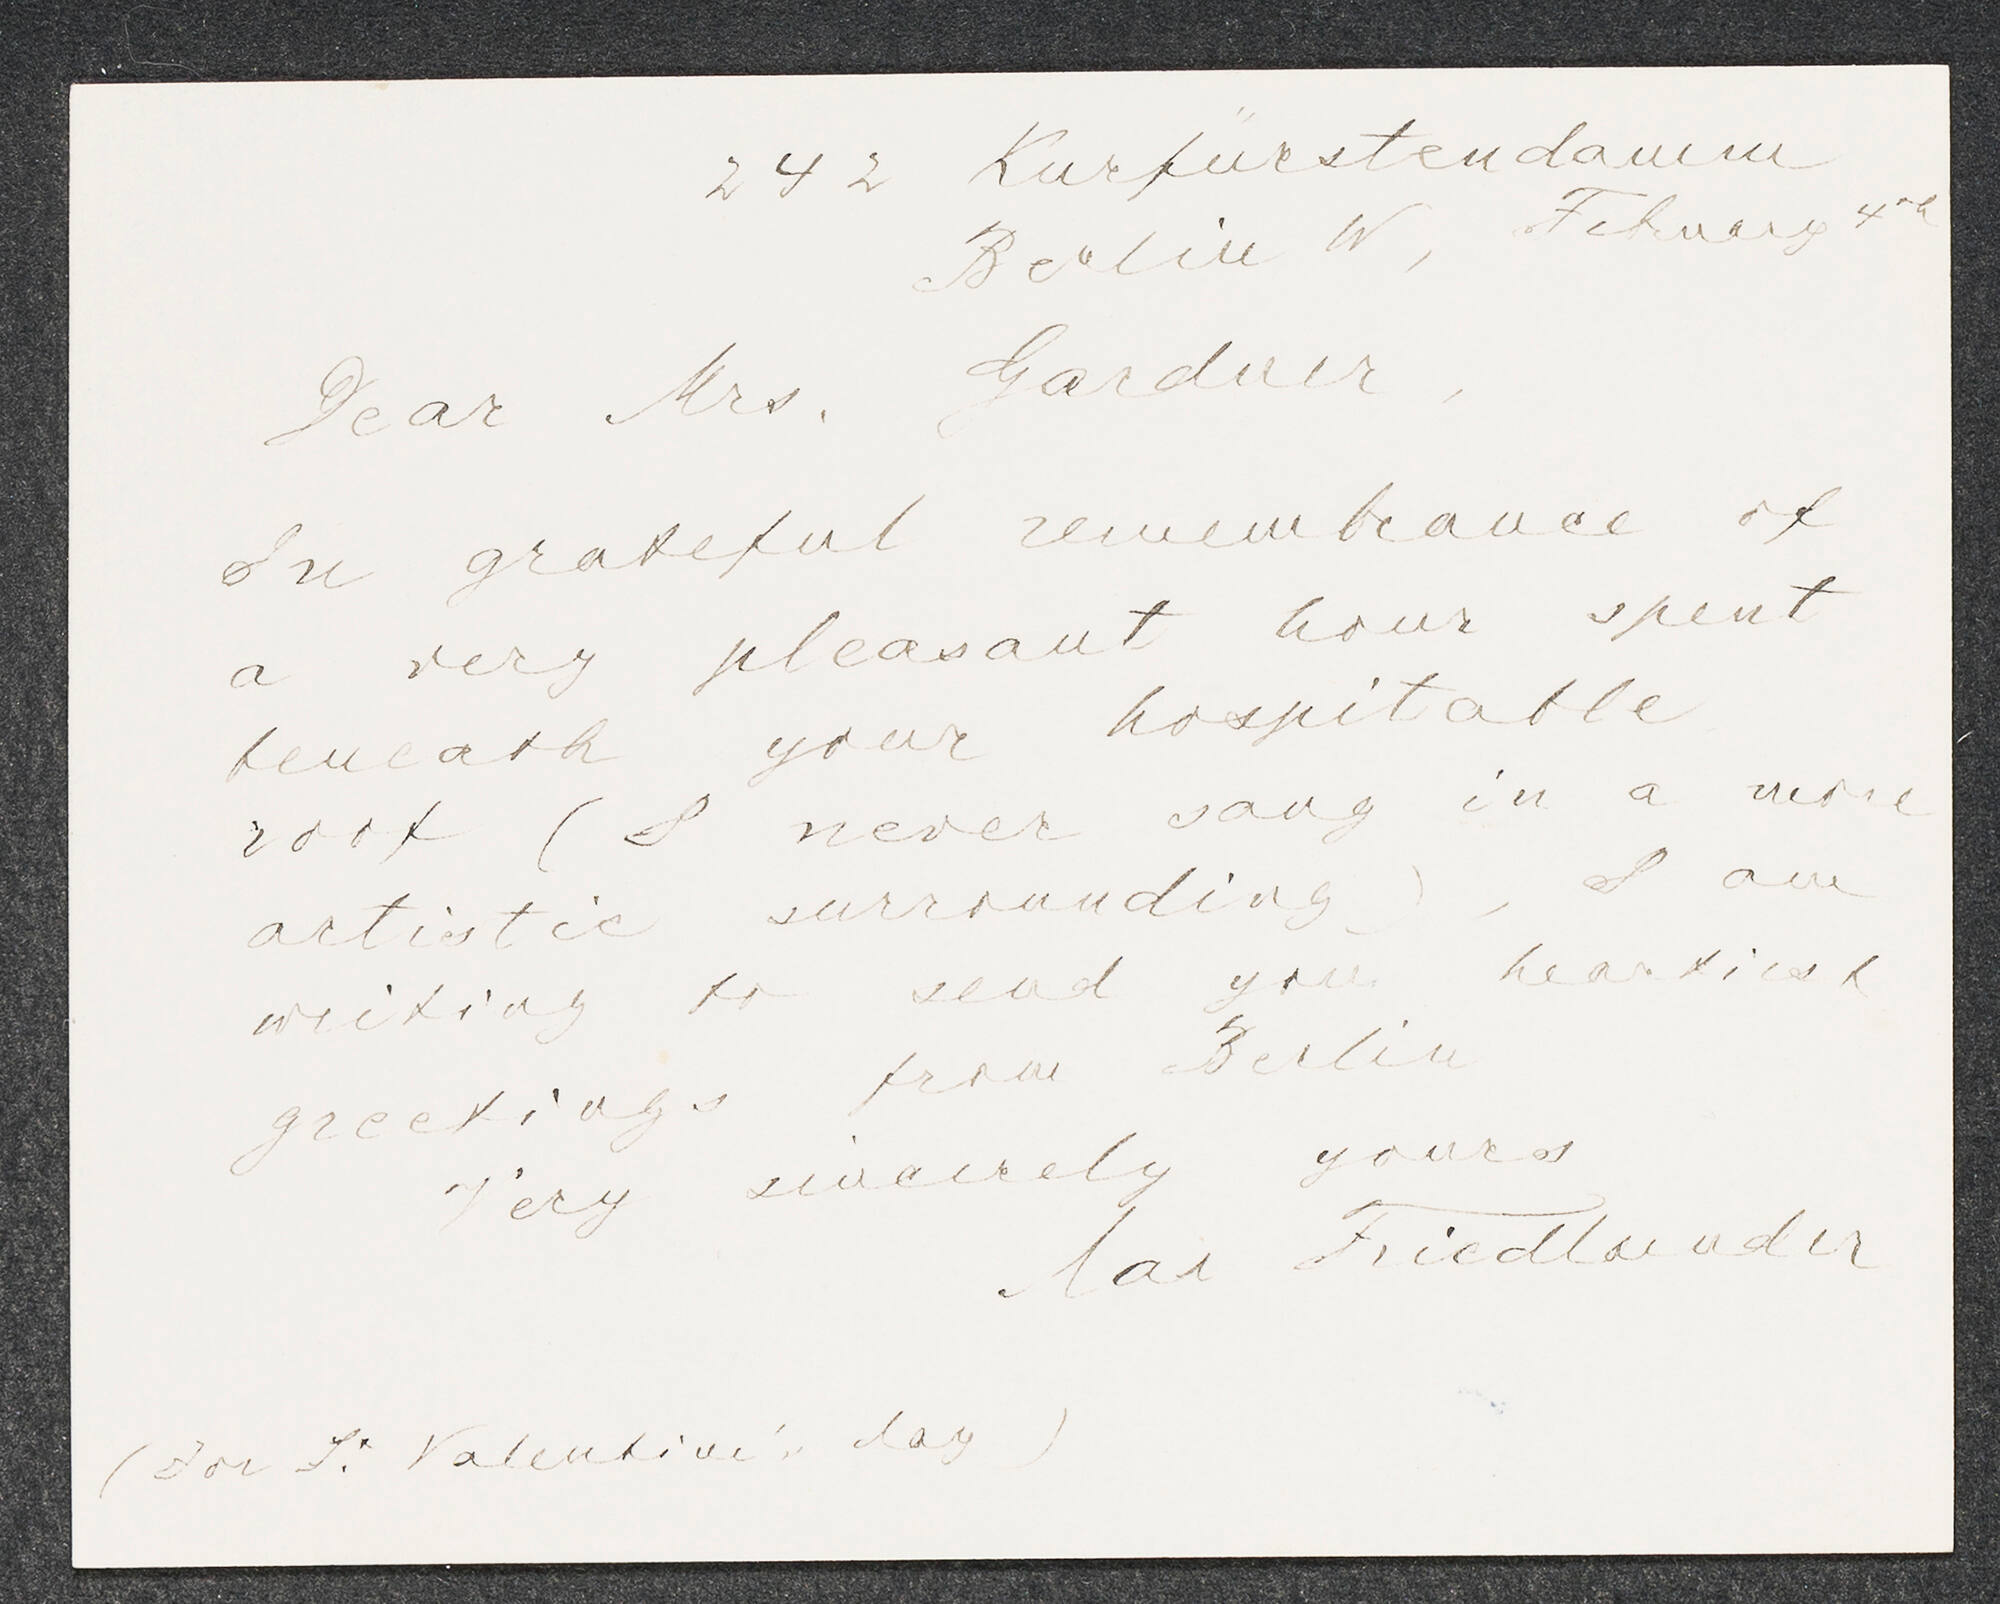 242 Kurfürstendamm
Berlin W, February 4th
Dear Mrs. Gardner,
In grateful remembrance of
a very pleasant hour spent
beneath your hospitable
roof (I never sang in a more
artistic surrounding), I am
writing to send you heartiest
greetings from Berlin
Very sincerely yours
Max Friedlaender
(For St Valentine's day)